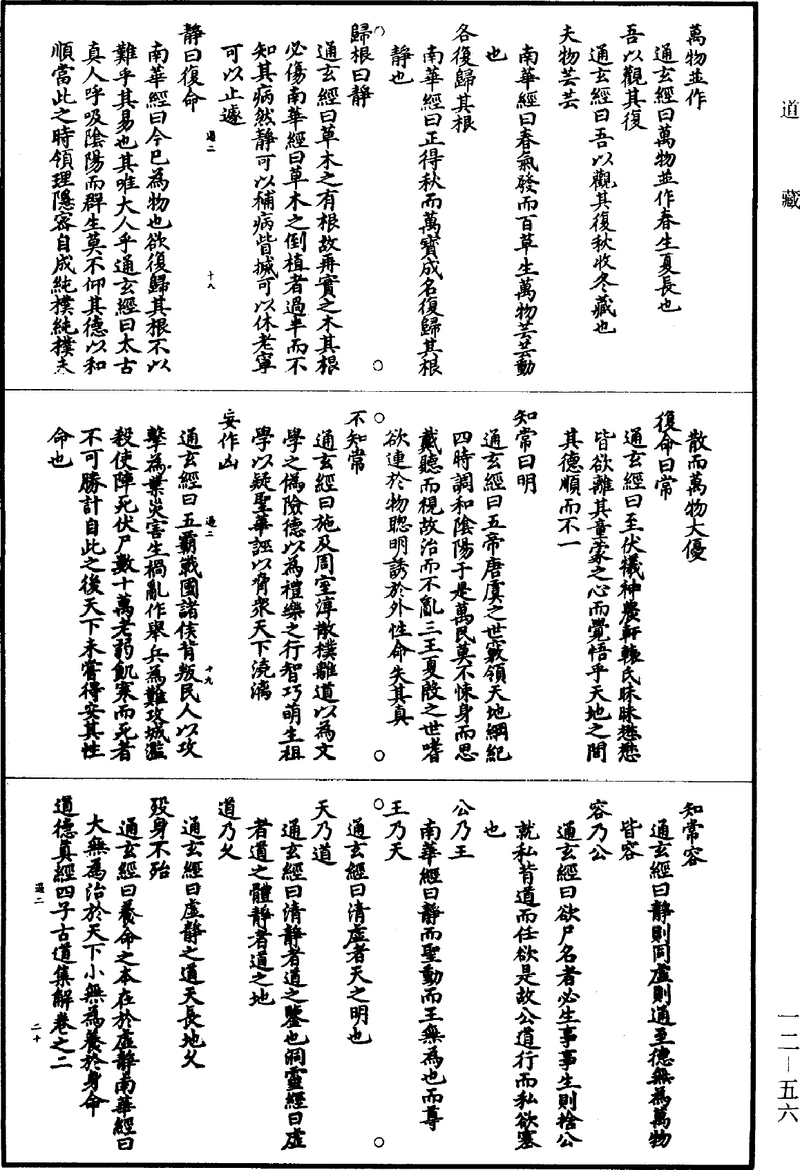 道藏
萬物並作
通玄經曰萬物並作春生夏長也
吾以觀其復
通玄經曰吾以觀其復秋收冬藏也
夫物芸芸
南華經曰春氣發而百草生萬物芸芸動
也
各復歸其根
南華經曰正得秋而萬寶成名復歸其根
靜也
歸根曰靜
通玄經曰草木之有根故再實之木其根
必傷南華經曰草木之倒植者過半而不
知其病然靜可以補病眥搣可以休老寧
可以止遽
靜曰復命
過二 十八
南華經曰今已為物也欲復歸其根不以
難乎其易也其唯大人乎通玄經曰太古
真人呼吸陰陽而群生莫不仰其德以和
順當此之時領理隱密自成純樸純樸未
散而萬物大優
復命曰常
通玄經曰至伏犧神農軒轅氏昧昧懋懋
皆欲離其童蒙之心而覺悟乎天地之間
其德順而不一
知常曰明
通玄經曰五帝唐虞之世竅領天地綱紀
四時調和陰陽于是萬民莫不悚身而思
戴聽而視故治而不亂三王夏殷之世嗜
欲連於物聰明誘於外性命失其真
不知常
通玄經曰施及周室澆散樸離道以為文
學之偽險德以為禮樂之行智巧萌生狙
學以疑聖華誣以脅衆天下澆漓
妄作凶
過二 十九
通玄經曰五霸戰國諸侯背叛民人以攻
擊為業災害生禍亂作舉兵為難攻城濫
殺使陣死伏尸數十萬老弱飢寒而死者
不可勝計自此之後天下未嘗得安其性
命也
知常容
通玄經曰靜則同虛則通至德無為萬物
皆容
容乃公
通玄經曰欲尸名者必生事事生則捨公
就私背道而任欲是故公道行而私欲塞
也
公乃王
南華經曰靜而聖動而王無為也而尊
王乃天
通玄經曰清虛者天之明也
天乃道
通玄經曰清靜者道之鑒也洞靈經曰虛
者道之體靜者道之地
道乃久
通玄經曰虛靜之道天長地久
歿身不殆
通玄經曰養命之本在於虛靜南華經曰
大無為治於天下小無為養於身命
道德真經四子古道集解卷之二
過二 二十
一二－五六